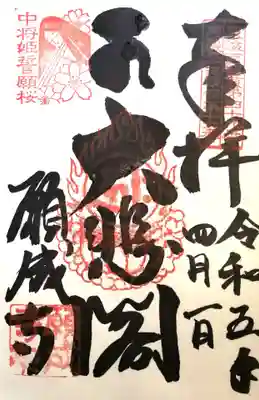 奉拝
令和五年
四月一日
大悲閣
願成寺
中将姫誓願桜